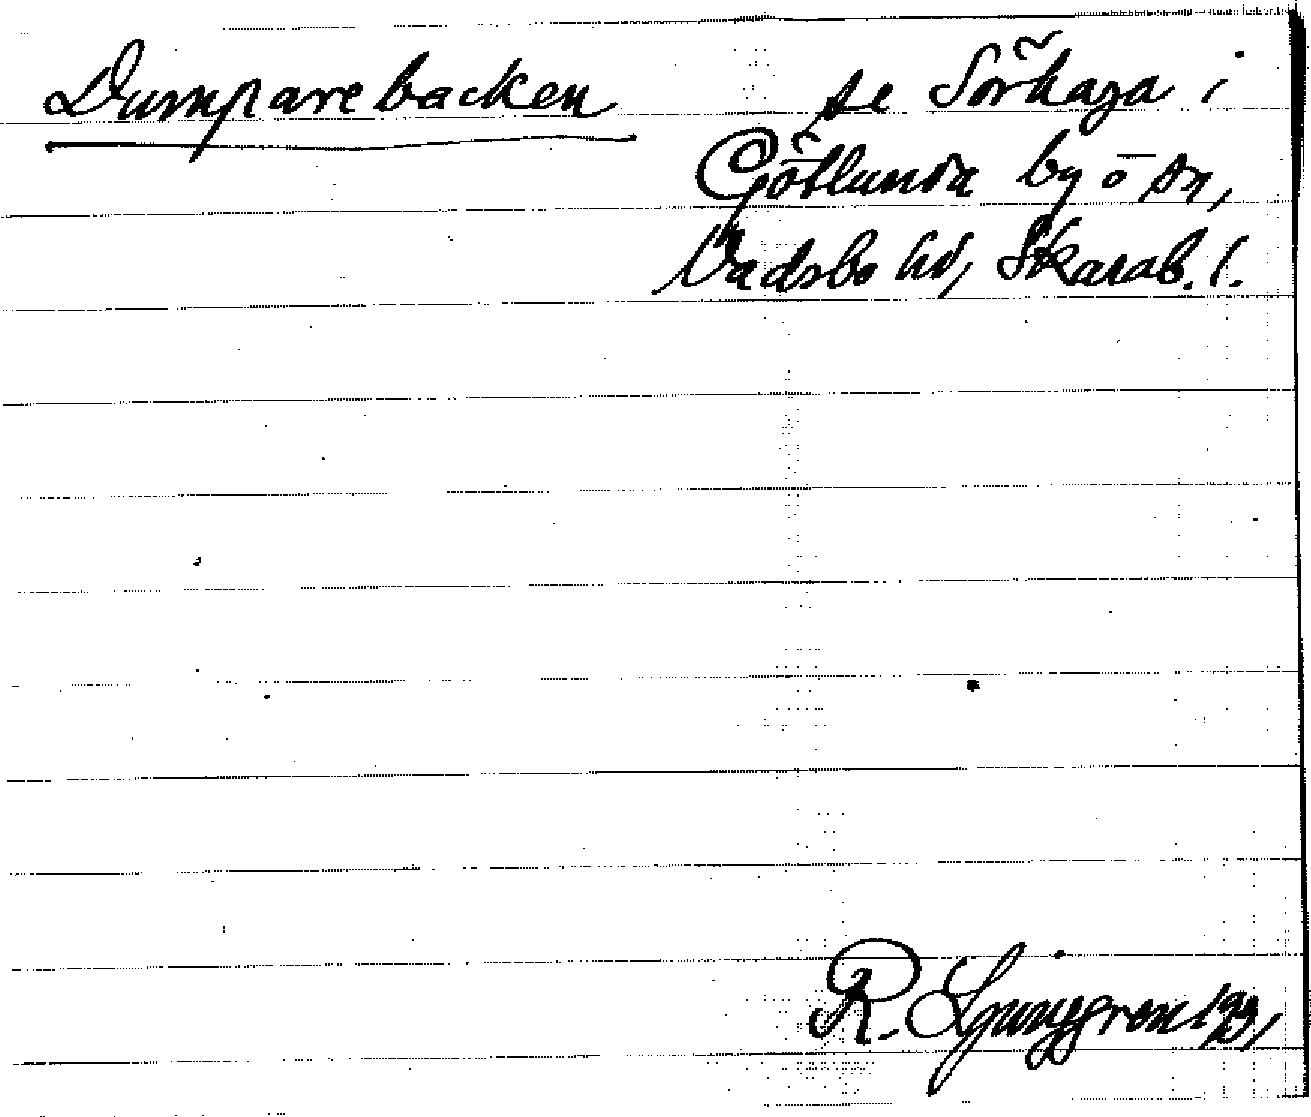 Dumparebacken se Sörhaga i
Götlunda by o sn,
Vadsbo hd, Skarab. l.
R. Ljunggren